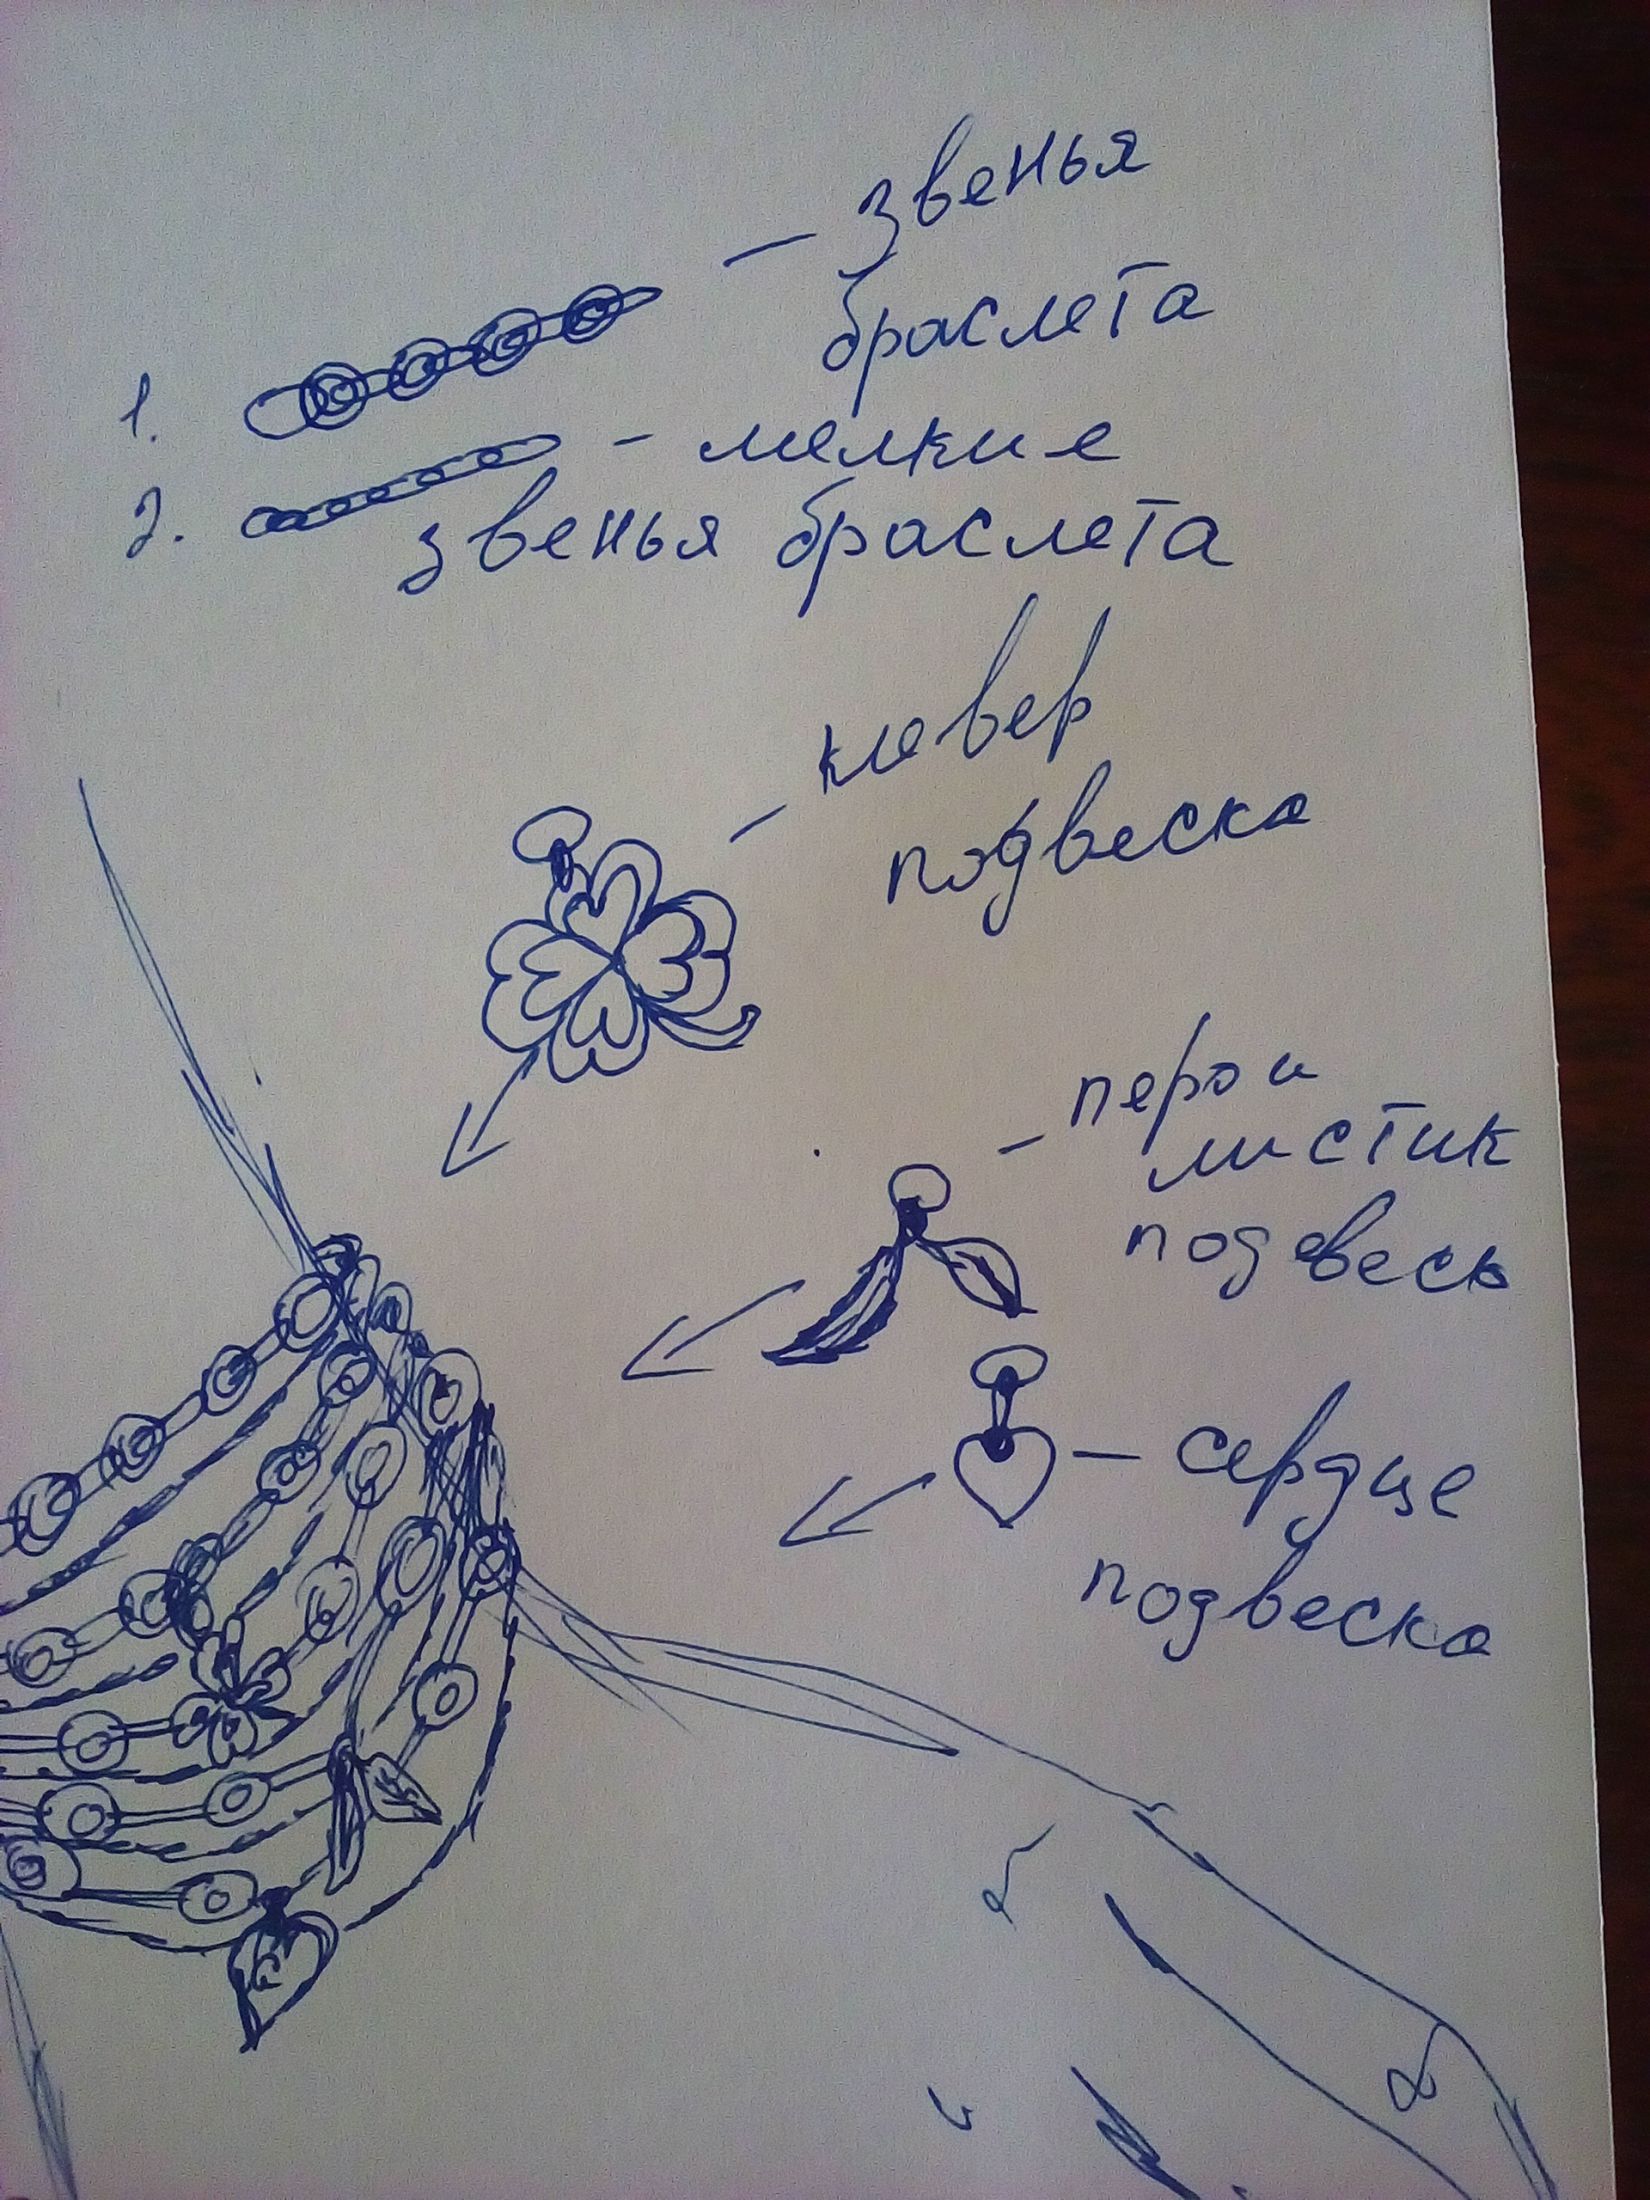 1. - звенья
браслета
2. - мелкие
звенья браслета
- клевер
подвеска
- перо и
листик
подвесь
- сердце
подвеска